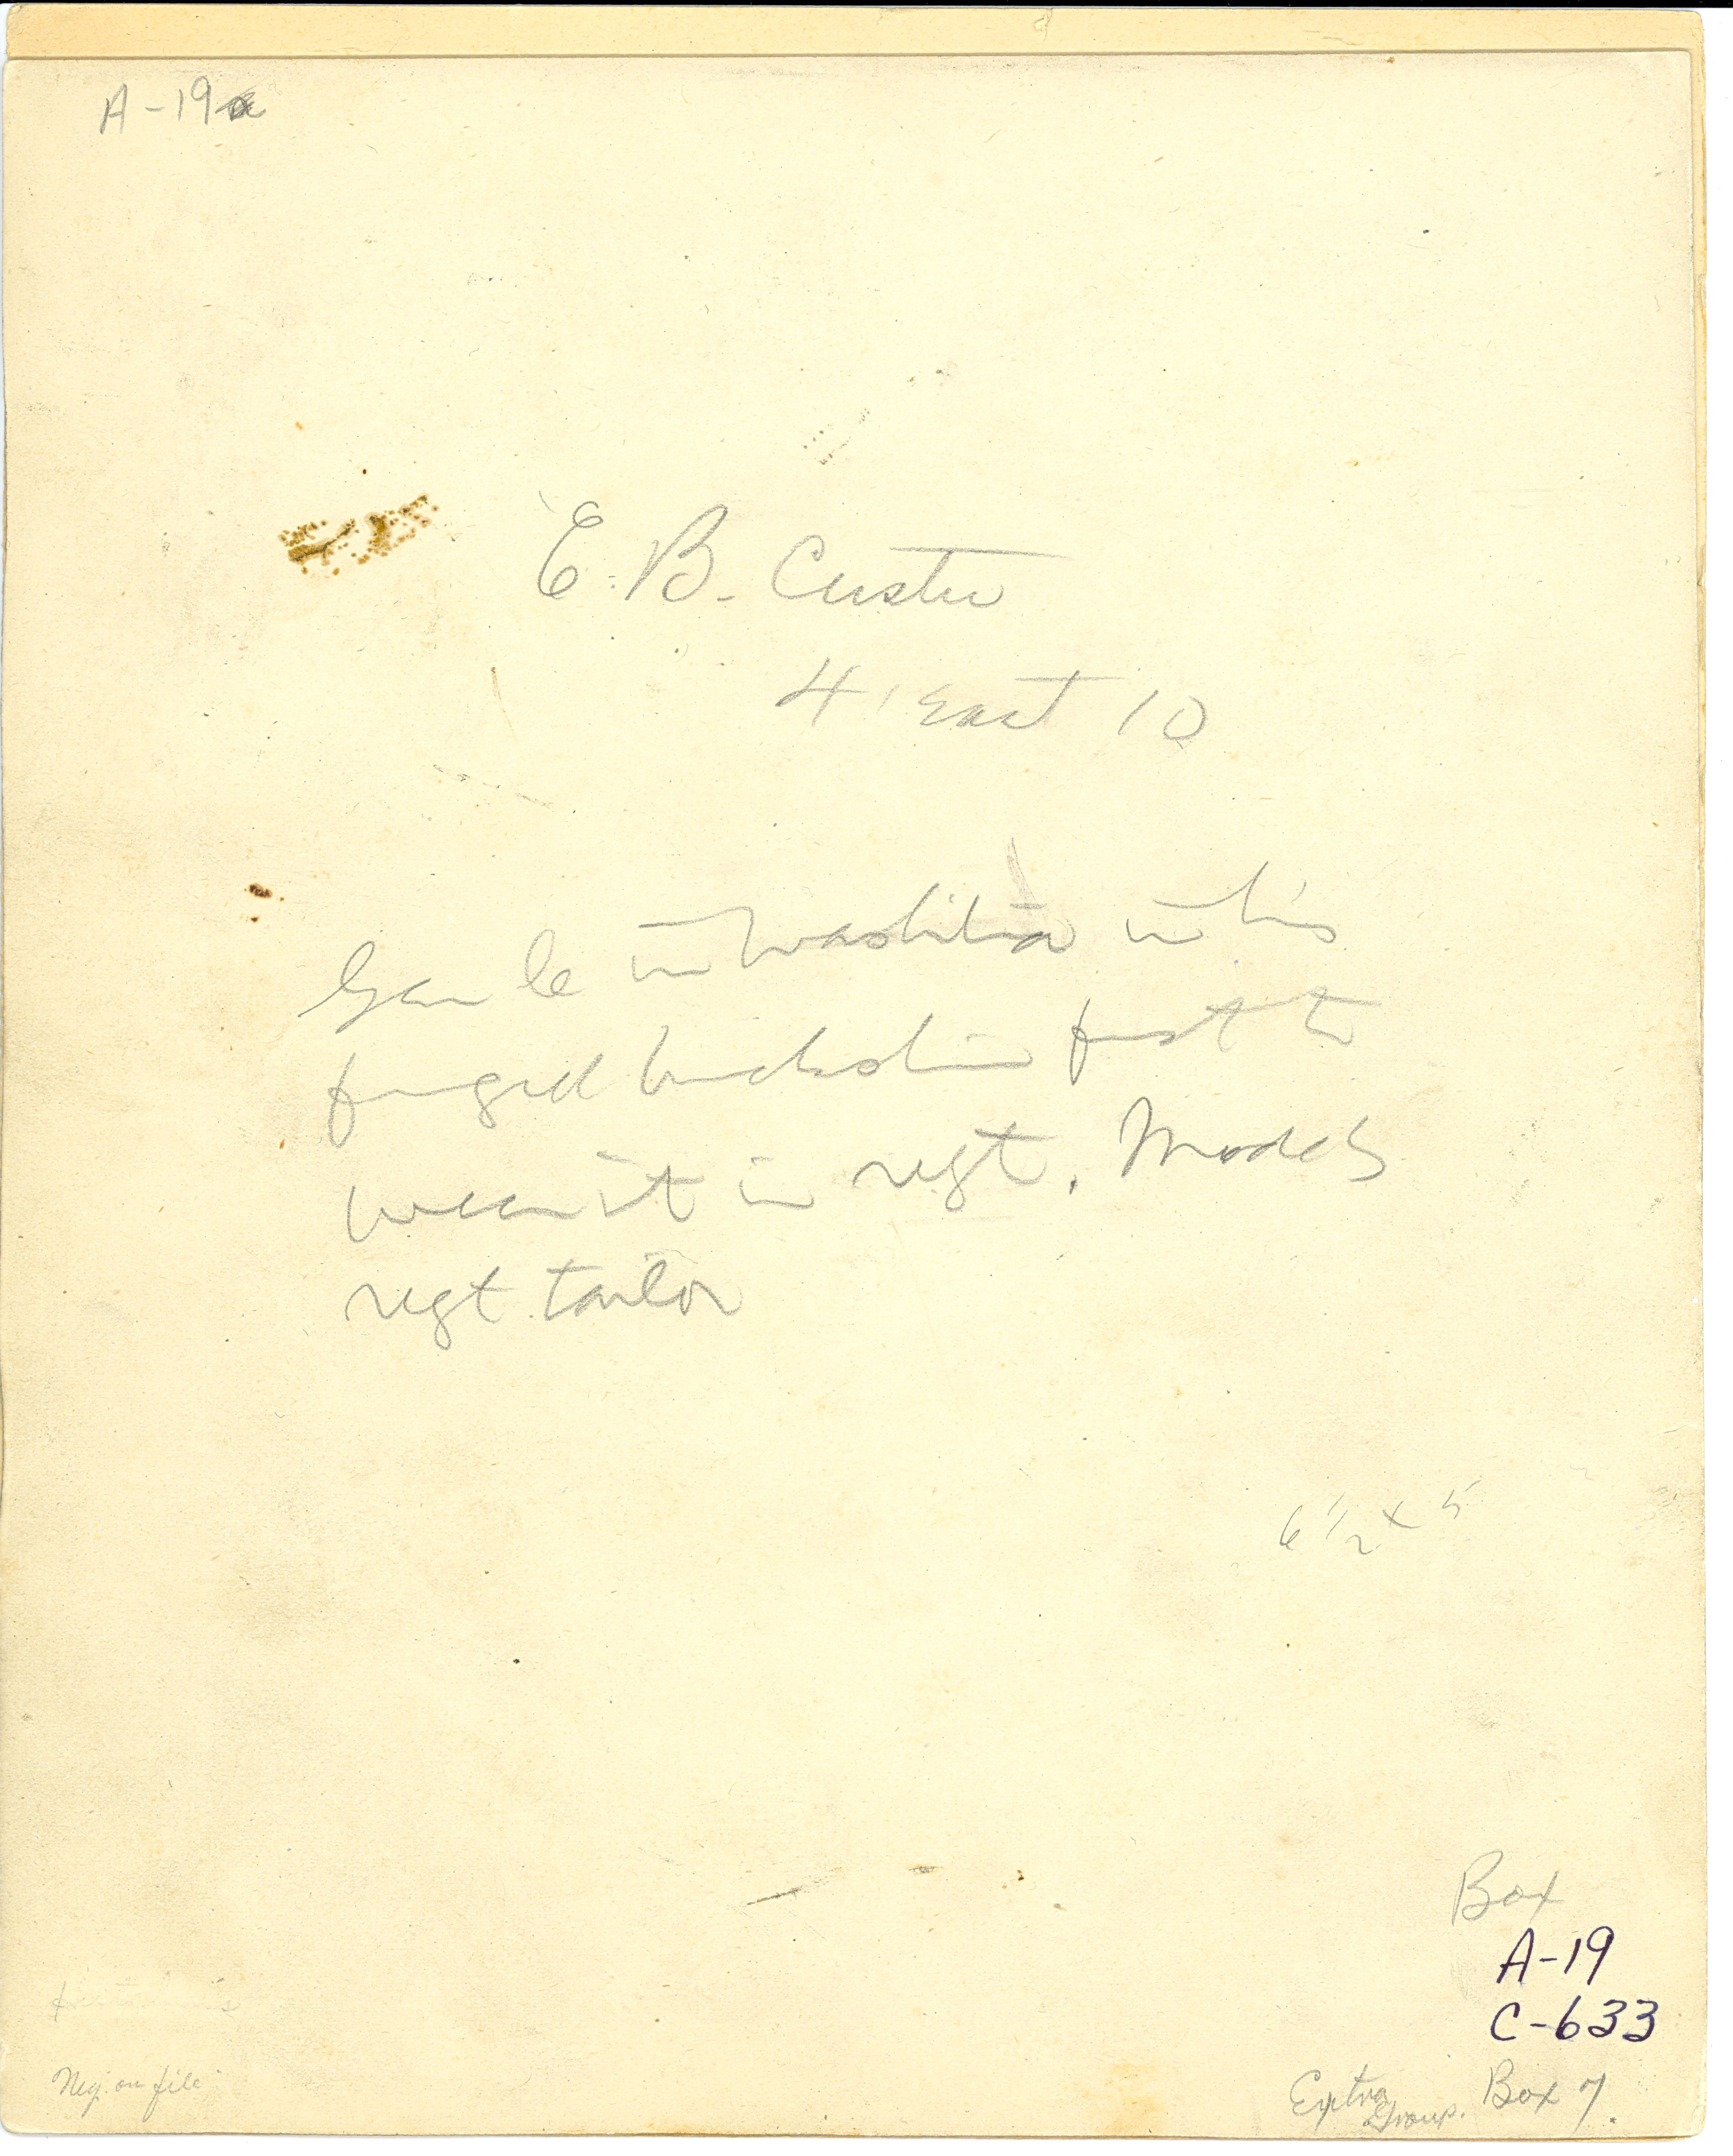 A-19
E. B. Custer
4 East 10
Gen le in Washita in his
fringed buckskin first to
wear it in regt. Models
regt tailor
6 1/2 x 5
Box
A-19
C-633
Neg. on file
Extra Group. Box 7.